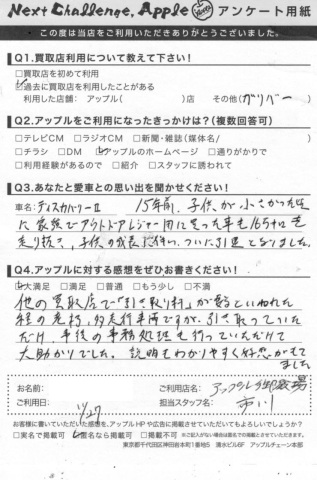 Next Challenge, Apple アンケート用紙
この度は当店をご利用いただきありがとうございました。
Q1.買取店利用について教えて下さい!
□買取店を初めて利用
☑過去に買取店を利用したことがある
利用した店舗: アップル( )店 その他(ガリバー)
Q2.アップルをご利用になったきっかけは?(複数回答可)
□テレビCM □ラジオCM □新聞・雑誌(媒体名/ )
□チラシ □DM ☑アップルのホームページ □通りがかりで
□利用経験があるので □紹介 □スタッフに誘われて
Q3.あなたと愛車との思い出を聞かせください!
車名:ディスカバリーII 15年前、子供が小さかった時
に家族でアウトドアレジャー用に買った車も16万キロを
走り抜き、子供の成長に伴い、ついに引退となりました。
Q4.アップルに対する感想をぜひお書きください!
☑大満足 □満足 □普通 □もう少し □不満
他の買取店で「引き取り料」が掛るといわれた
程の老朽、多走行車両ですが、引き取っていた
だけ、事後の事務処理も行っていただけて
大助かりでした。説明もわかりやすく好感がもて
ました
お名前: ご利用店名: アップル御殿場
ご利用日: 11/27 担当スタッフ名: 市川
お客様に書いていただいた感想を、アップルHPや広告に掲載させていただいてもよろしいでしょうか?
□実名で掲載可 ☑匿名なら掲載可 □掲載不可 ※ご記入がない場合は匿名での掲載とさせていただきます。
東京都千代田区神田岩本町1番地5 清水ビル6F アップルチェーン本部